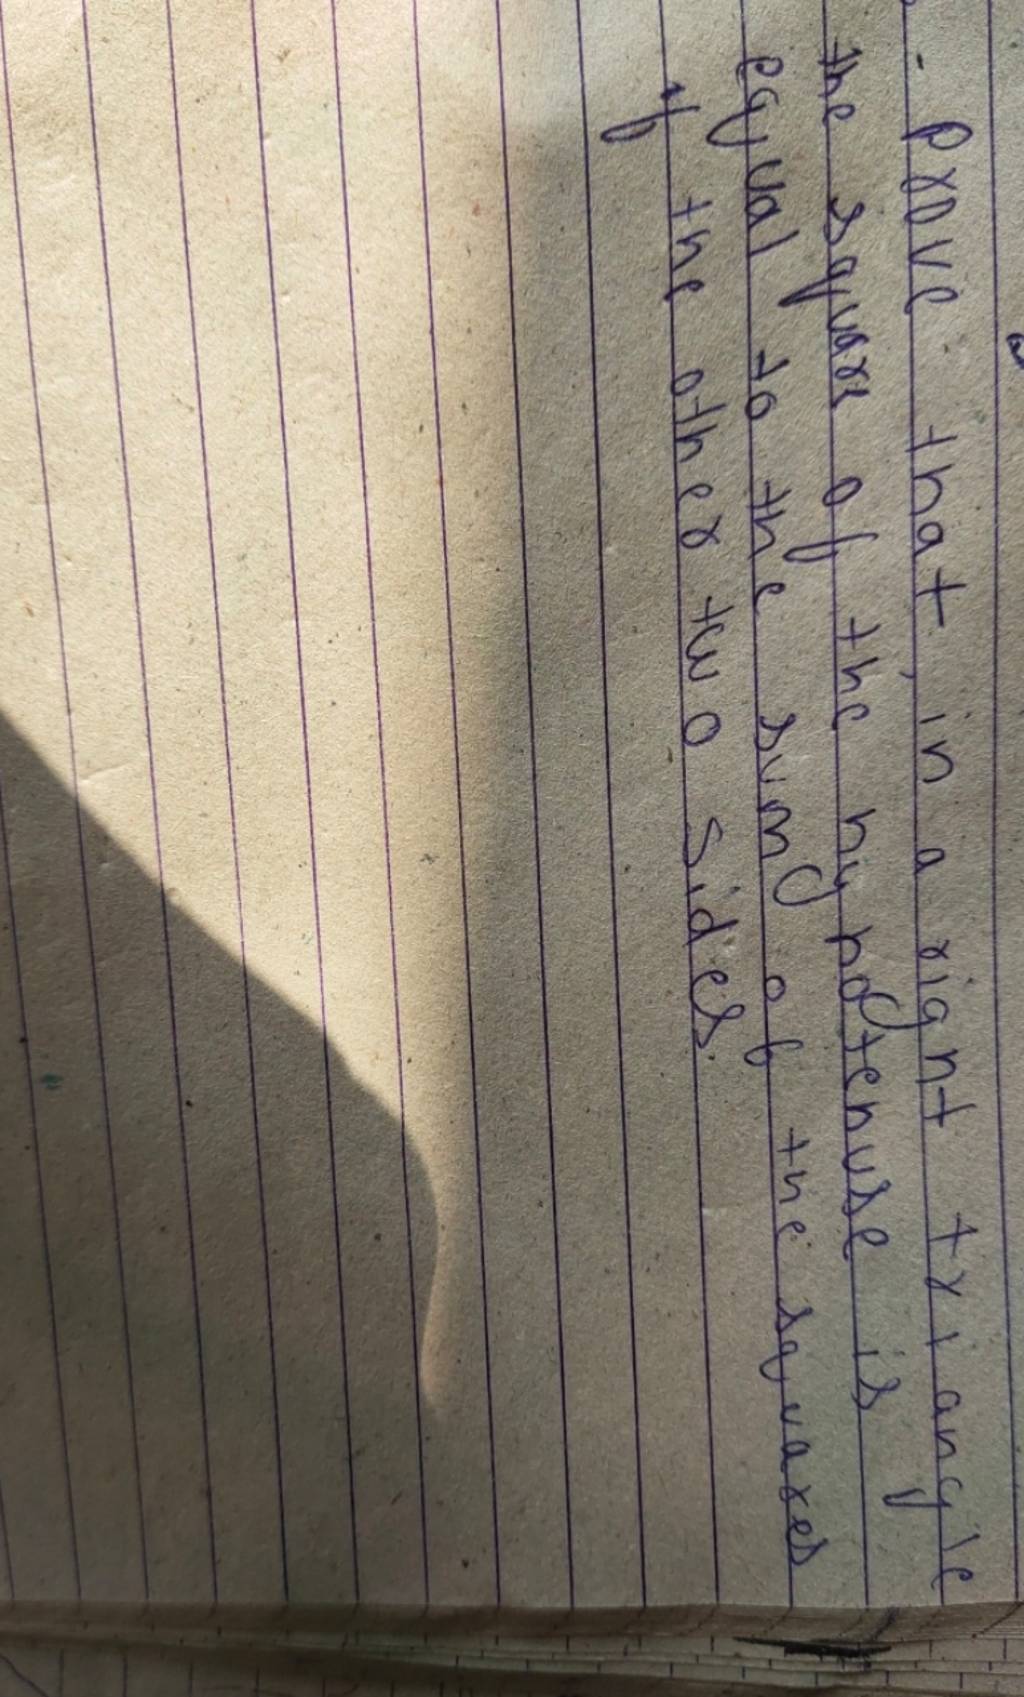 - Prove that, in a right triangle
the square of the hypotenuse is
equal to the sum of the squares
of the other two sides.